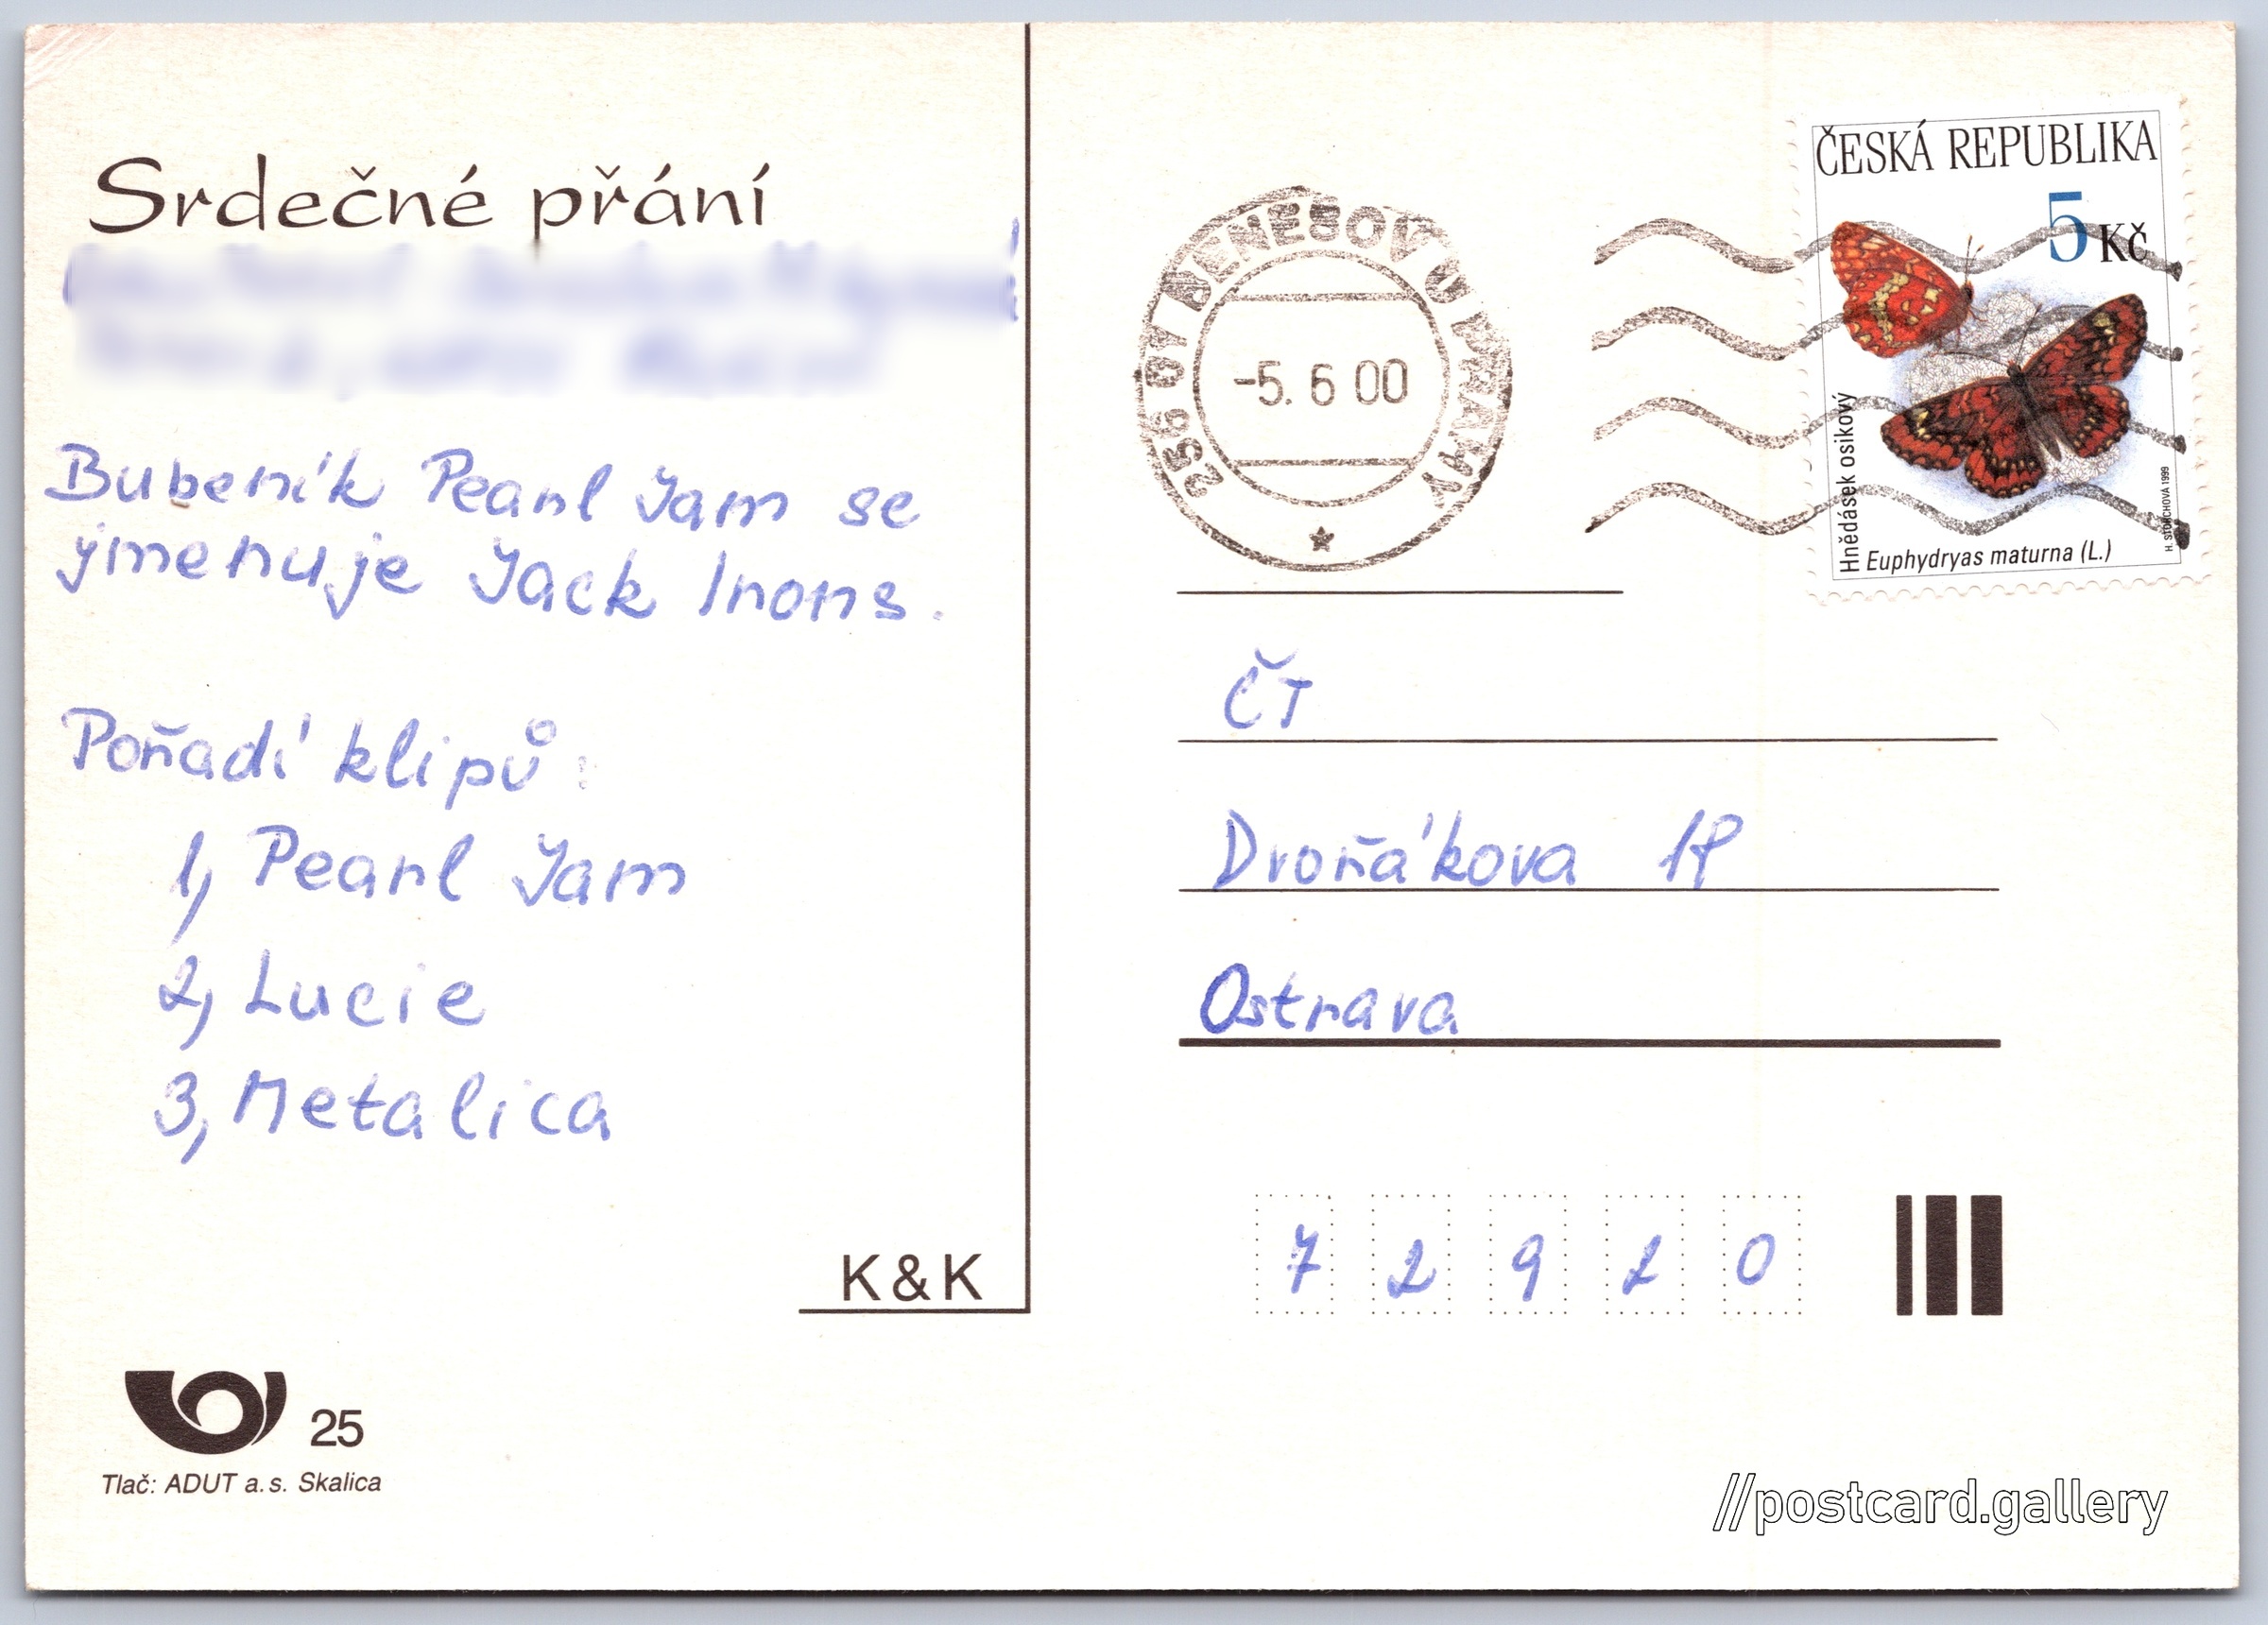 Srdečné přání
Bubeník Pearl Jam se
jmenuje Jack Inons.
Pořadí klipů:
1, Pearl Jam
2, Lucie
3, Metalica
K&K
25
Tlač: ADUT a.s. Skalica
256 01 BENEŠOV U PRAHY
-5. 6 00
ČESKÁ REPUBLIKA
5 Kč
Hnědásek osikový
Euphydryas maturna (L.)
H. STORCHOVÁ 1999
ČT
Dvořákova 18
Ostrava
72920
//postcard.gallery